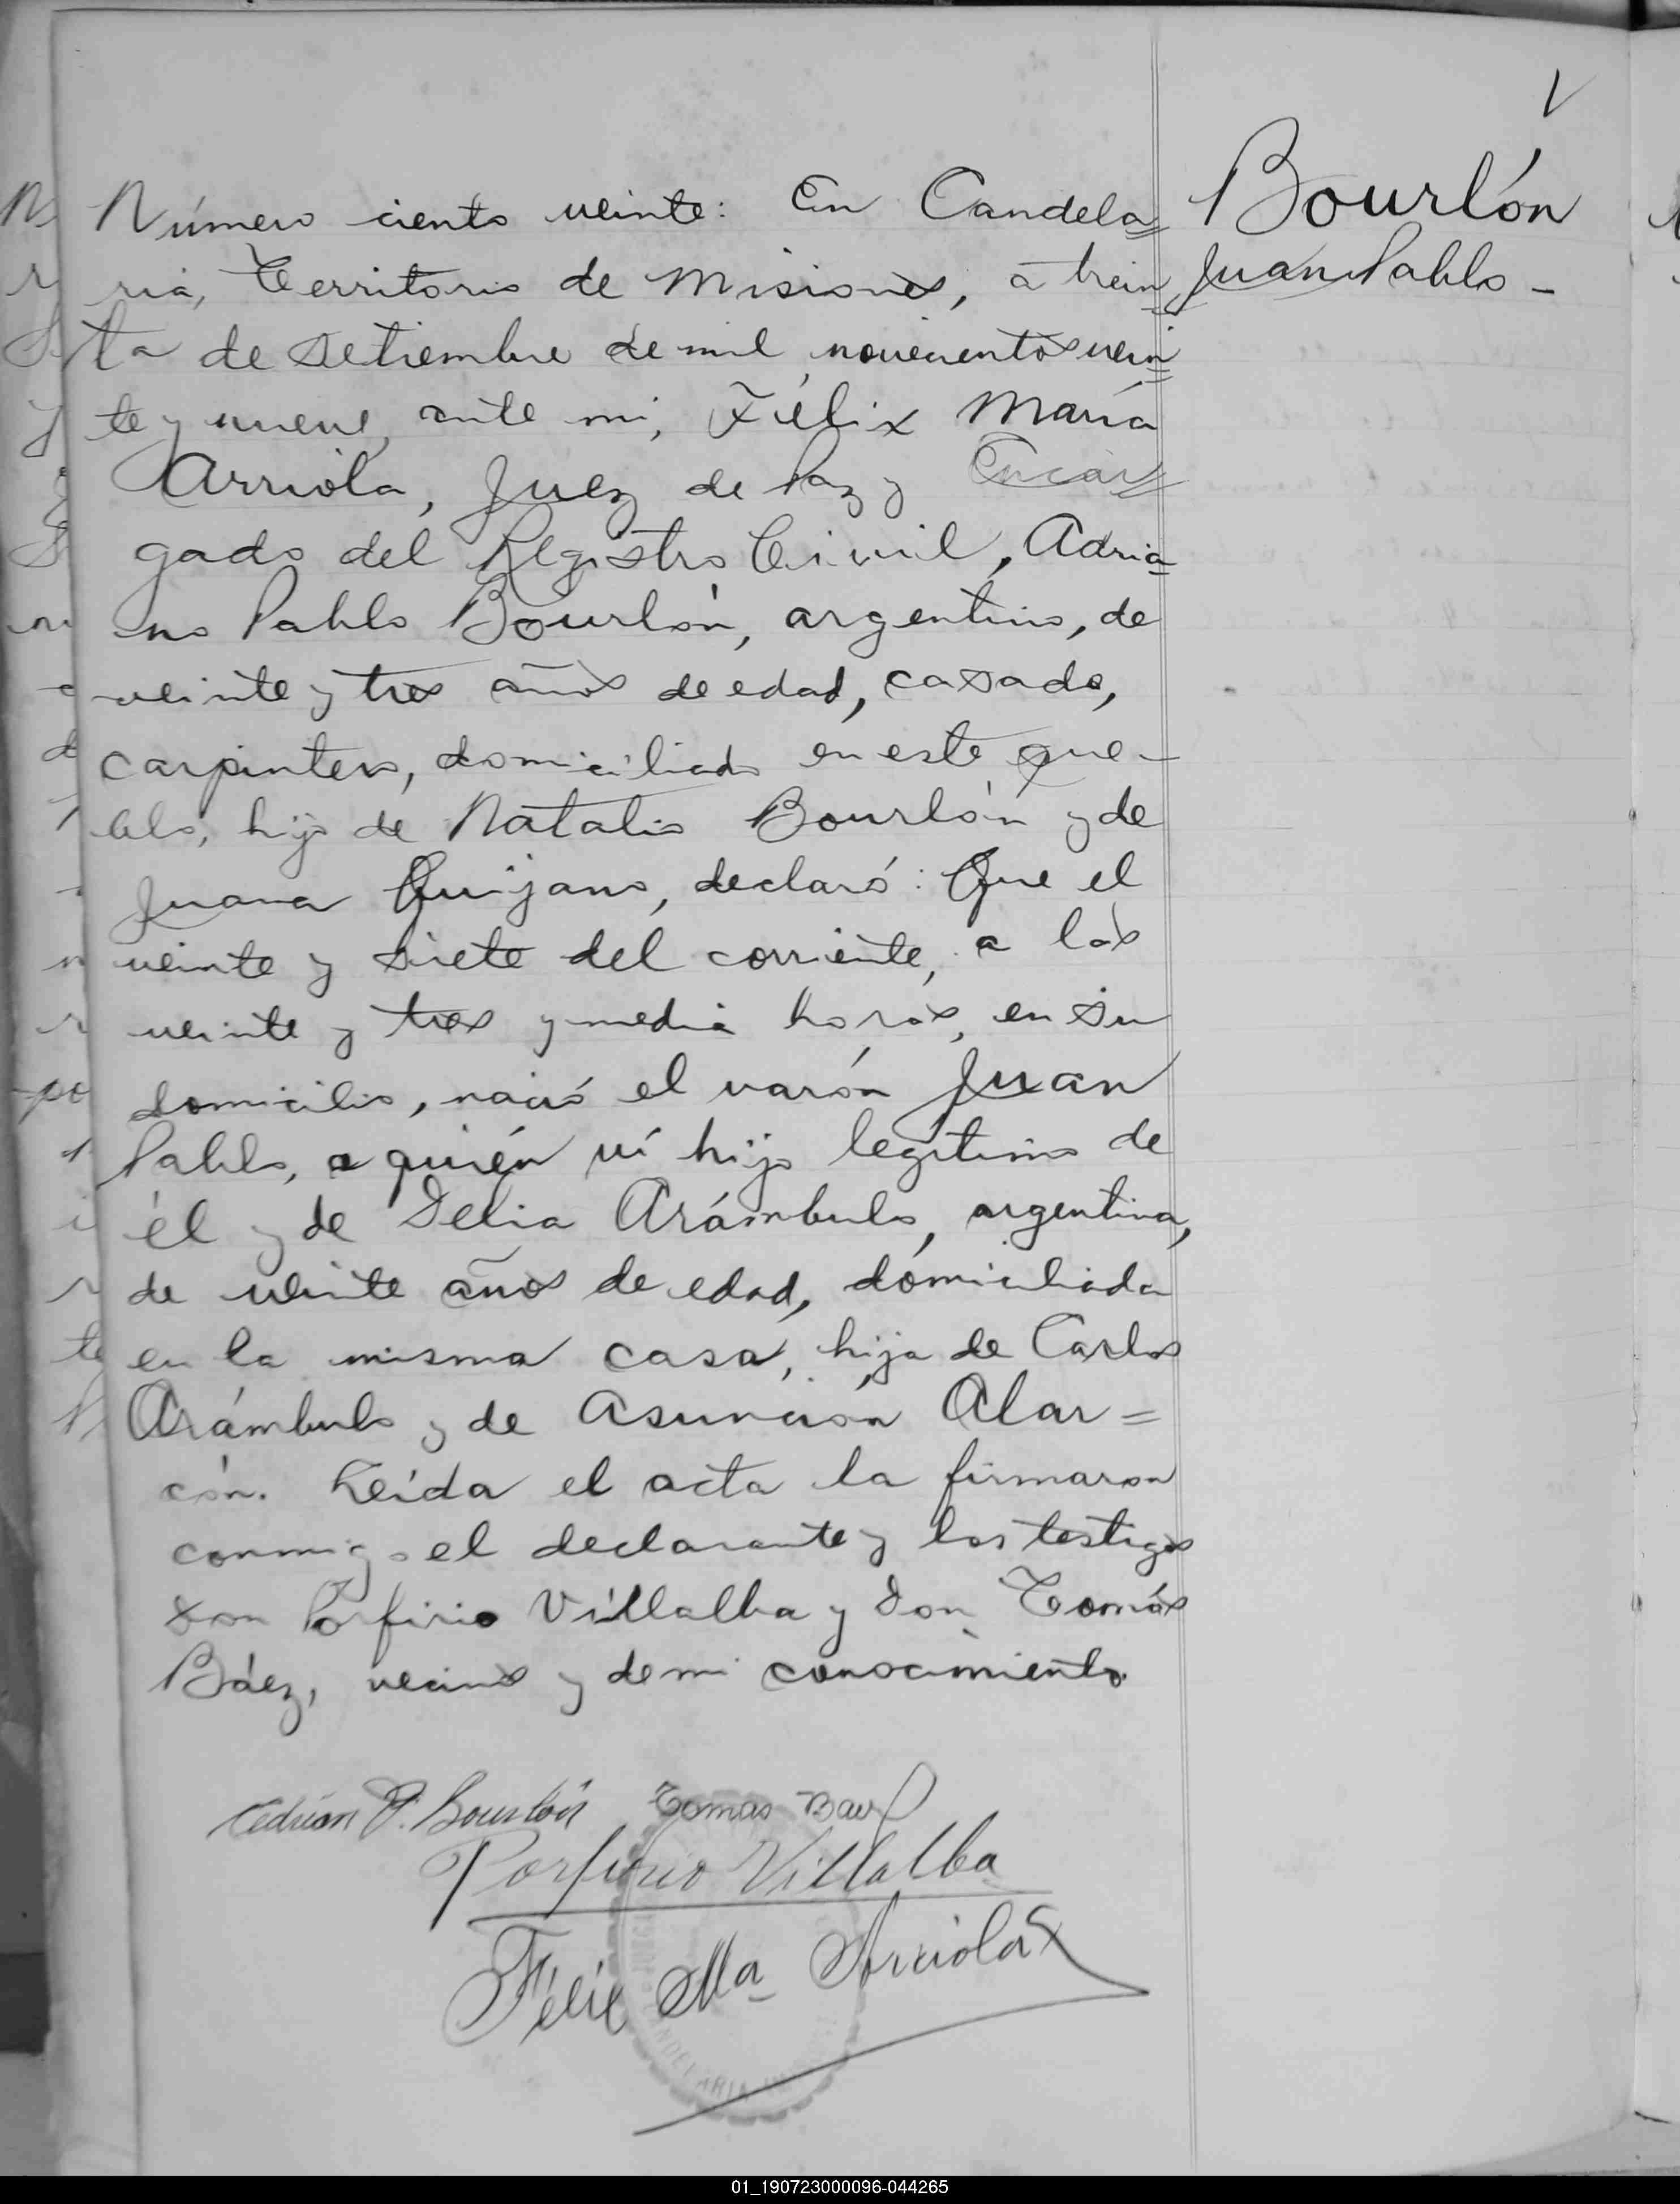 V
Bourlón
Juan Pablo -
Número ciento veinte: En Candela=
ria, Territorio de Misiones, a trein=
ta de setiembre de mil novecientos vein=
te y nueve, ante mi, Félix María
Arriola, Juez de Paz y Encar=
gado del Registro Civil, Adria=
no Pablo Bourlón, argentino, de
veinte y tres años de edad, casado,
carpintero, domiciliado en este pue-
blo, hijo de Natalio Bourlón y de
Juana Quijano, declaró: Que el
veinte y siete del corriente, a las
veinte y tres y media horas, en su
domicilio, nació el varón Juan
Pablo, a quién ví hijo legítimo de
él y de Delia Arámbulo, argentina,
de veinte años de edad, domiciliada
en la misma casa, hija de Carlos
Arámbulo y de Asunción Alar=
cón. Leída el acta la firmaron
conmigo el declarante y los testigos
don Porfirio Villalba y don Tomás
Báez, vecinos y de mi conocimiento.
Adrian P. Bourlón Tomas Baez
Porfirio Villalba
Félix Ma Arriola
CANDELARIA
01_190723000096-044265